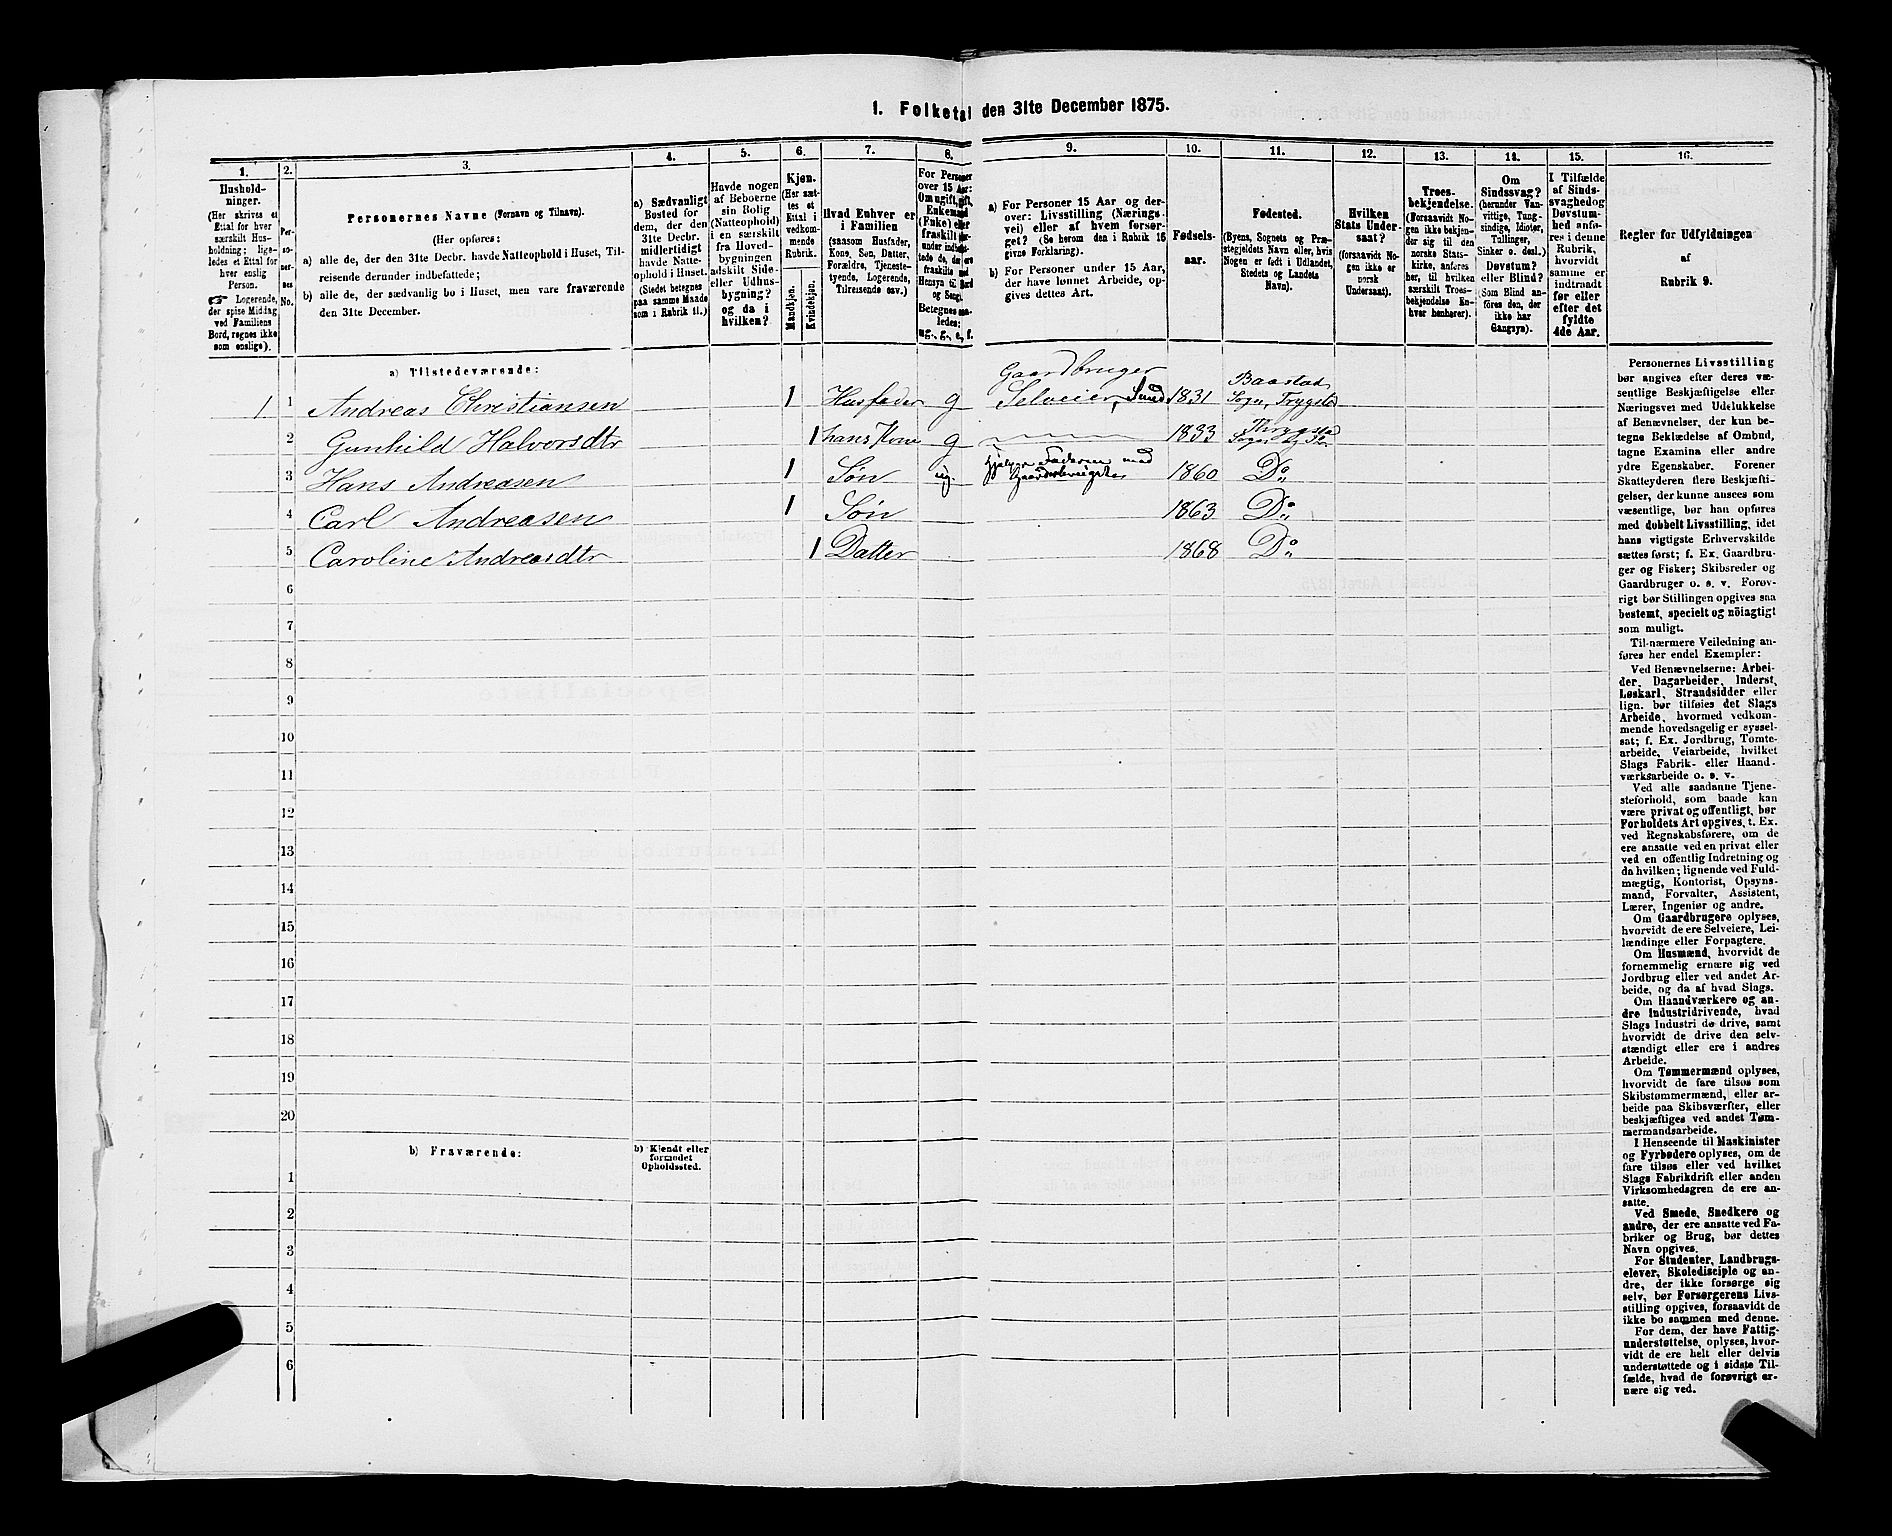 1. Folketal den 31te December 1875.
1.
Hushold-
ninger.
(Her skrives et
Ettal for hver
særskilt Hus-
holdning; lige-
ledes et Ettal for
hver enslig
Person.
☞ Logerende,
der spise Middag
ved Familiens
Bord, regnes ikke
som enslige).
2.
Per-
so-
ner-
nes
No.
3.
Personernes Navne (Fornavn og Tilnavn).
(Her opføres:
a) alle de, der den 31te Decbr. havde Natteophold i Huset, Til-
reisende derunder indbefattede;
b) alle de, der sædvanlig bo i Huset, men vare fraværende
den 31te December.
4.
a) Sædvanligt
Bosted for
dem, der den
31te Decbr.
midlertidigt
havde Natte-
ophold i Huset.
(Stedet betegnes
paa samme Maade
som i Rubrik 11.)
5.
Havde nogen
af Beboerne
sin Bolig
(Natteophold)
i en særskilt
fra Hoved-
bygningen
adskilt Side-
eller Udhus-
bygning?
og da i
hvilken?
6.
Kjøn.
(Her sæt-
tes et
Ettal i
vedkom-
mende
Rubrik.
Mandkjøn.
Kvindekjøn.
7.
Hvad Enhver er
i Familien
(saasom Husfader,
Kone, Søn, Datter,
Forældre, Tjeneste-
tyende, Logerende,
Tilreisende osv.)
8.
For Personer
over 15 Aar:
Om ugift, gift,
Enkemand
(Enke) eller
fraskilt
Hensyn til Bord
og Seng).
Betegnes saa-
ledes:
ug., g., e., f.
9.
a) For Personer 15 Aar og der-
over: Livsstilling (Nærings-
vei) eller af hvem forsør-
get? (Se herom den i Rubrik 16
givne Forklaring).
b) For Personer under 15 Aar,
der have lønnet Arbeide, op-
gives dettes Art.
10.
Fødsels-
aar.
11.
Fødested.
(Byens, Sognets og Præ-
stegjeldets Navn eller, hvis
Nogen er født i Udlandet,
Stedets og Landets
Navn).
12.
Hvilken
Stats Under-
saat?
(forsaavidt No-
gen ikke er
norsk
Undersaat).
13.
Troes-
bekjendelse.
(Forsaavidt No-
gen ikke bekjen-
der sig til den
norske Stats-
kirke, anføres
her, til hvilken
særskilt Troes-
bekjendelse En-
hver henhører).
14.
Om
Sindssvag?
(herunder Van-
vittige, Tung-
sindige, Idioter,
Tullinger,
Sinker o. desl.)
Døvstum?
eller Blind?
(Som Blind an-
føres den, der
ikke har
Gangsyn).
15.
I Tilfælde
af Sinds-
svaghed og
Døvstum-
hed anfø-
res i denne
Rubrik,
hvorvidt
samme er
indtraadt
før eller
efter det
fyldte
4de Aar.
16.
Regler for Udfyldningen
af
Rubrik 9.
a) Tilstedeværende:
1 1 Andreas Christiansen 1 Husfader g Gaardbruger
Selveier, 1831 Baastad
Sogn, Trygstd
2 Gunhild Halvorsdtr 1 hans Kone g 1833 Thrygstad
Sogn og
3 Hans Andreasen 1 Søn ug. Hjelper Faderen med
1860 Do
4 Carl Andreasen 1 Søn 1863 Do
5 Caroline Andreasdtr 1 Datter 1868 Do
6
7
8
9
10
11
12
13
14
15
16
17
18
19
20
b) Fraværende:
b) Kjendt eller
formodet
Opholdssted.
1
2
3
4
5
6
Personernes Livsstilling
bør angives efter deres væ-
sentlige Beskjæftigelse eller
Næringsvei med Udelukkelse
af Benævnelser, der kun be-
tegne Beklædelse af Ombud,
tagne Examina eller andre
ydre Egenskaber. Forener
Skatteyderen flere Beskjæfti-
gelser, der kunne ansees som
væsentlige, bør han opføres
med dobbelt Livsstilling, idet
hans vigtigste Erhvervskilde
sættes først; f. Ex. Gaardbru-
ger og Fisker; Skibsreder og
Gaardbruger o. s. v. Forøv-
rigt bør Stillingen opgives saa
bestemt, specielt og nöiagtigt
som muligt.
Til nærmere Veiledning an-
føres her endel Exempler:
Ved Benævnelserne: Arbei-
der, Dagarbeider, Inderst,
Løskarl, Strandsidder eller
lign. bør tilføies det Slags
Arbeide, hvormed vedkom-
mende hovedsagelig er syssel-
sat; f. Ex. Jordbrug, Tomte-
arbeide, Veiarbeide, hvilket
Slags Fabrik- eller Haand-
værksarbeide o. s. v.
Ved alle saadanne Tjene-
steforhold, som baade kan
være privat og offentligt, bør
Forholdets Art opgives, t. Ex.
ved Regnskabsførere, om de
ere ansatte ved en privat eller
ved en offentlig Indretning og
da hvilken; lignende ved Fuld-
mægtig, Kontorist, Opsyns-
mand, Forvalter, Assistent,
Lærer, Ingeniør og andre.
Om Gaardbrugere oplyses,
hvorvidt de ere Selveiere, Lei-
lændinge eller Forpagtere.
Om Husmænd, hvorvidt de
fornemmelig ernære sig ved
Jordbrug eller ved andet Ar-
beide, og da af hvad Slags.
Om Haandværkere og an-
dre Industridrivende, hvad
Slags Industri de drive, samt
hvorvidt de drive den selv-
stændigt eller ere i andres
Arbeide.
Om Tømmermænd oplyses,
hvorvidt de fare tilsøs som
Skibstømmermænd, eller ar-
beide paa Skibsværfter, eller
beskjæftiges ved andet Tøm-
mermandsarbeide.
I Henseende til Maskinister
og Fyrbødere oplyses, om de
fare tilsøs eller ved hvilket
Slags Fabrikdrift eller anden
Virksomhedsgren de ere an-
satte.
Ved Smede, Snedkere og
andre, der ere ansatte ved Fa-
briker og Brug, bør dettes
Navn opgives.
For Studenter, Landbrugs-
elever, Skoledisciple og an-
dre, der ikke forsørge sig
selv, bør Forsørgerens Livs-
stilling opgives, forsaavidt de
ikke bo sammen med denne.
For dem, der have Fattig-
understøttelse, oplyses, hvor-
vidt de ere helt eller delvis
understøttede og i sidste Til-
fælde, hvad de forøvrigt er-
nære sig ved.